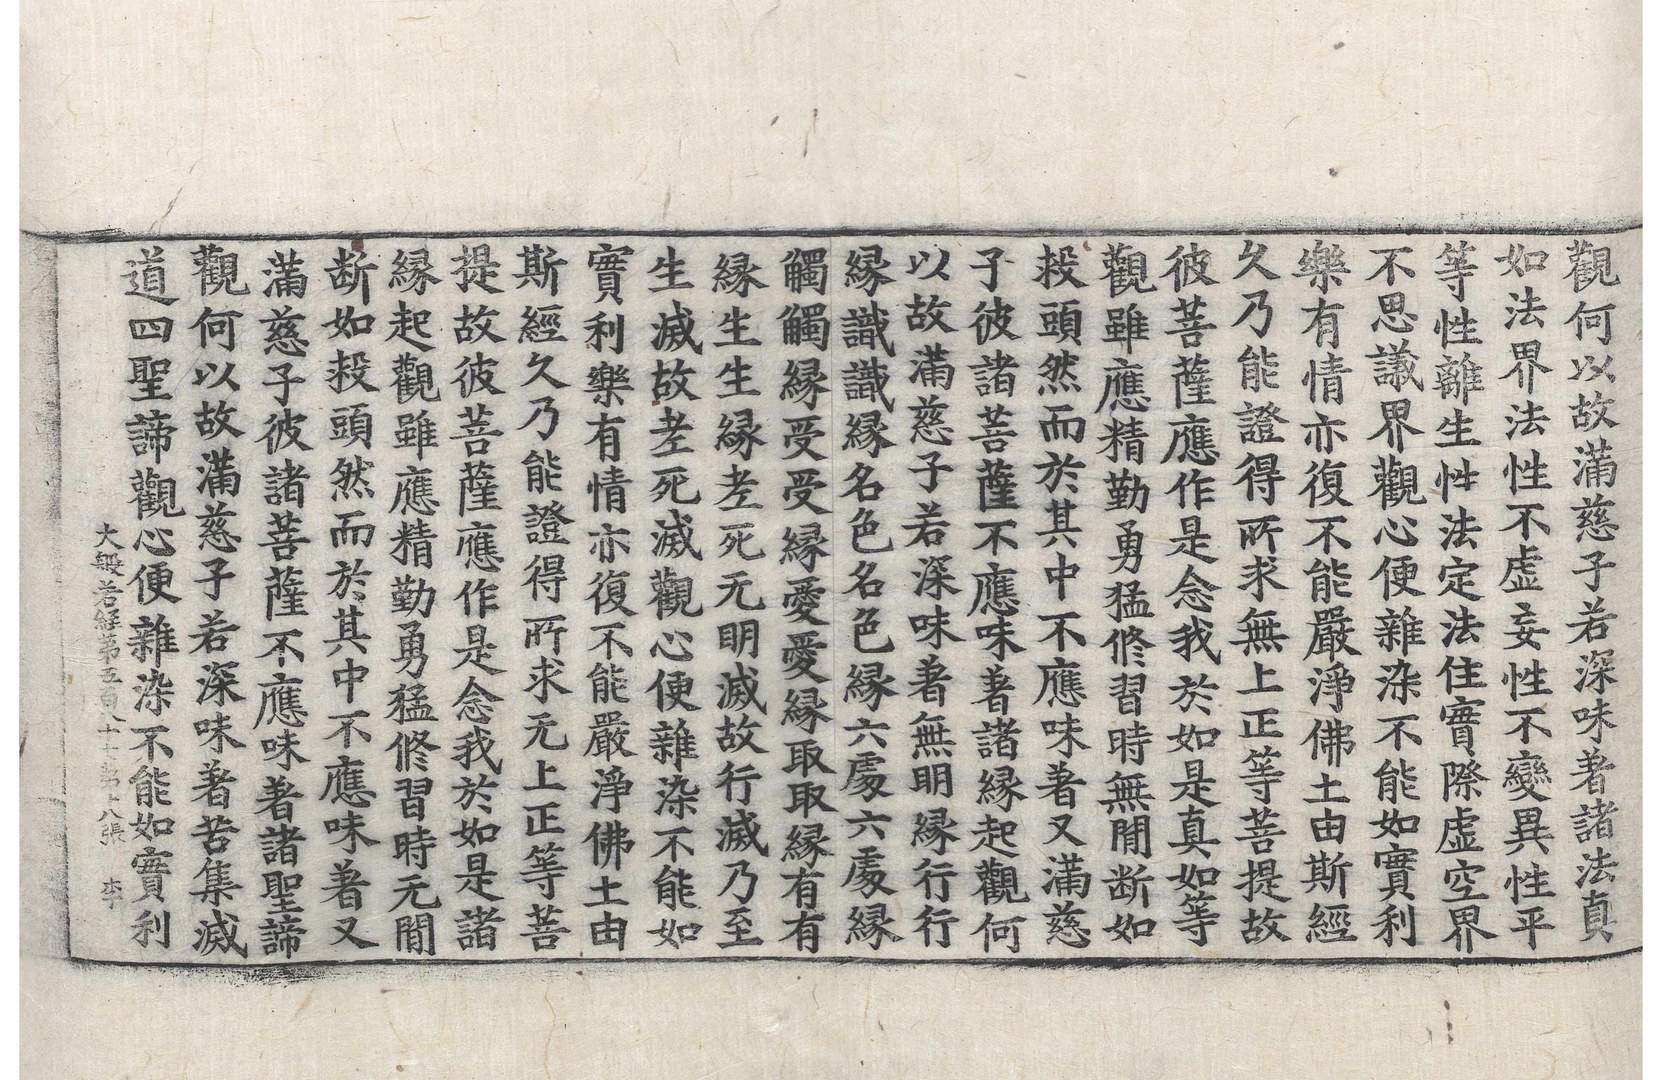 觀何以故滿慈子若深味著諸法真
如法界法性不虛妄性不變異性平
等性離生性法定法住實際虛空界
不思議界觀心便雜染不能如實利
樂有情亦復不能嚴淨佛土由斯經
久乃能證得所求無上正等菩提故
彼菩薩應作是念我於如是真如等
觀雖應精勤勇猛修習時無間断如
救頭然而於其中不應味著又滿慈
子彼諸菩薩不應味著諸緣起觀何
以故滿慈子若深味著無明緣行行
緣識識緣名色名色緣六處六處緣
觸觸緣受受緣愛愛緣取取緣有有
緣生生緣老死无明滅故行滅乃至
生滅故老死滅觀心便雜染不能如
實利樂有情亦復不能嚴淨佛土由
斯經久乃能證得所求无上正等菩
提故彼菩薩應作是念我於如是諸
緣起觀雖應精勤勇猛修習時无間
断如救頭然而於其中不應味著又
滿慈子彼諸菩薩不應味著諸聖諦
觀何以故滿慈子若深味著苦集滅
道四聖諦觀心便雜染不能如實利
大般若經第五百八十七第十八張 李